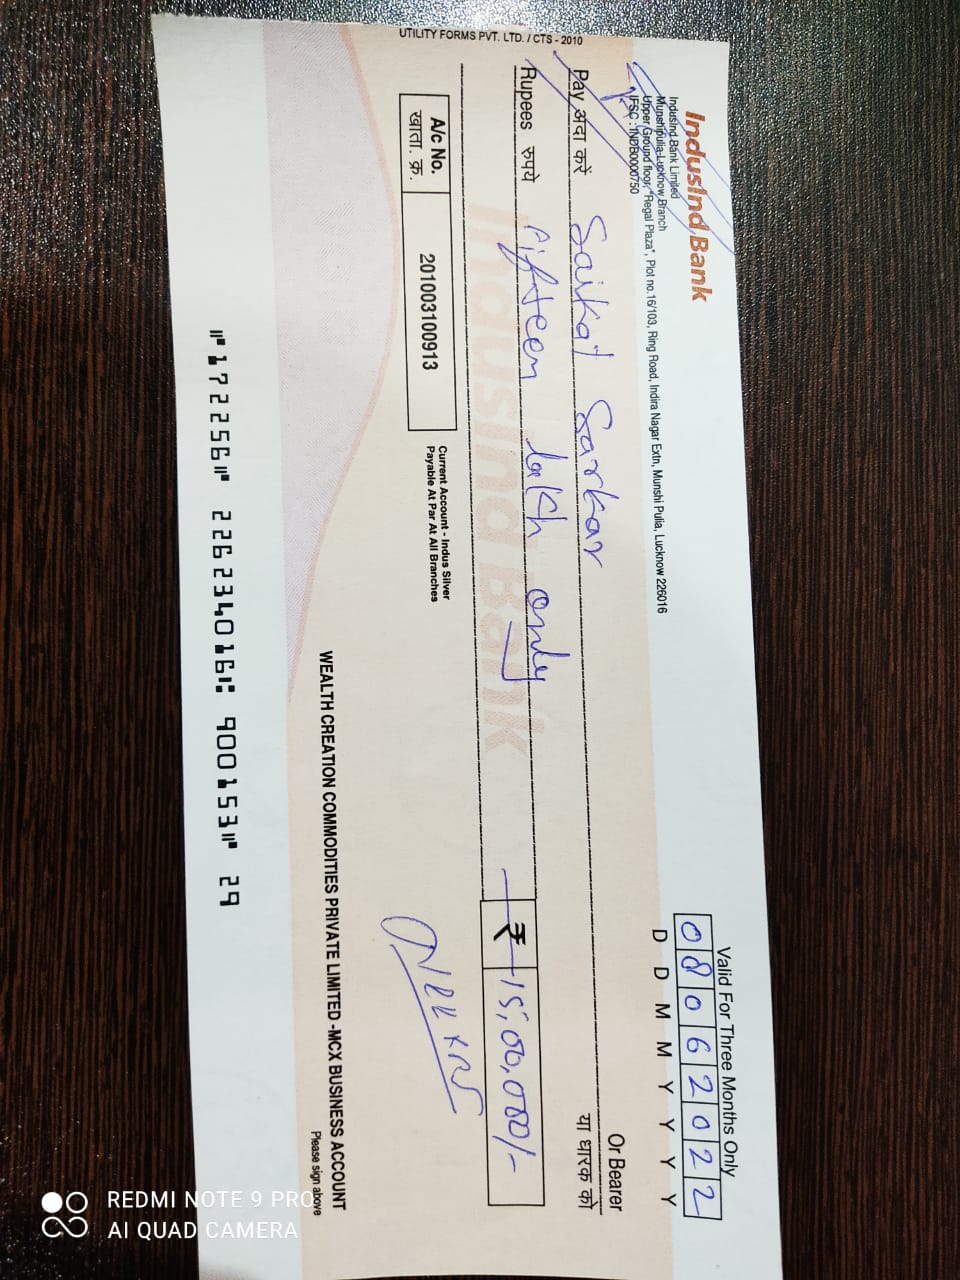 IndusInd Bank
IndusInd Bank Limited
Munshipulia-Lucknow Branch
Upper Ground floor, "Regal Plaza", Plot no.16/103, Ring Road, Indira Nagar Extn, Munshi Pulia, Lucknow 226016
IFSC : INDB0000750
Valid For Three Months Only
08062022
D D M M Y Y Y Y
Pay अदा करें Saikat Sarkar
Or Bearer
या धारक को
Rupees रुपये Fifteen lakh only
₹ 15,00,000/-
IndusInd Bank
A/c No.
खाता. क्र.
201003100913
Current Account - Indus Silver
Payable At Par At All Branches
WEALTH CREATION COMMODITIES PRIVATE LIMITED -MCX BUSINESS ACCOUNT
Please sign above
UTILITY FORMS PVT. LTD. / CTS - 2010
⑈172256⑈ 226234016⑆ 900153⑈ 29
REDMI NOTE 9 PRO
AI QUAD CAMERA